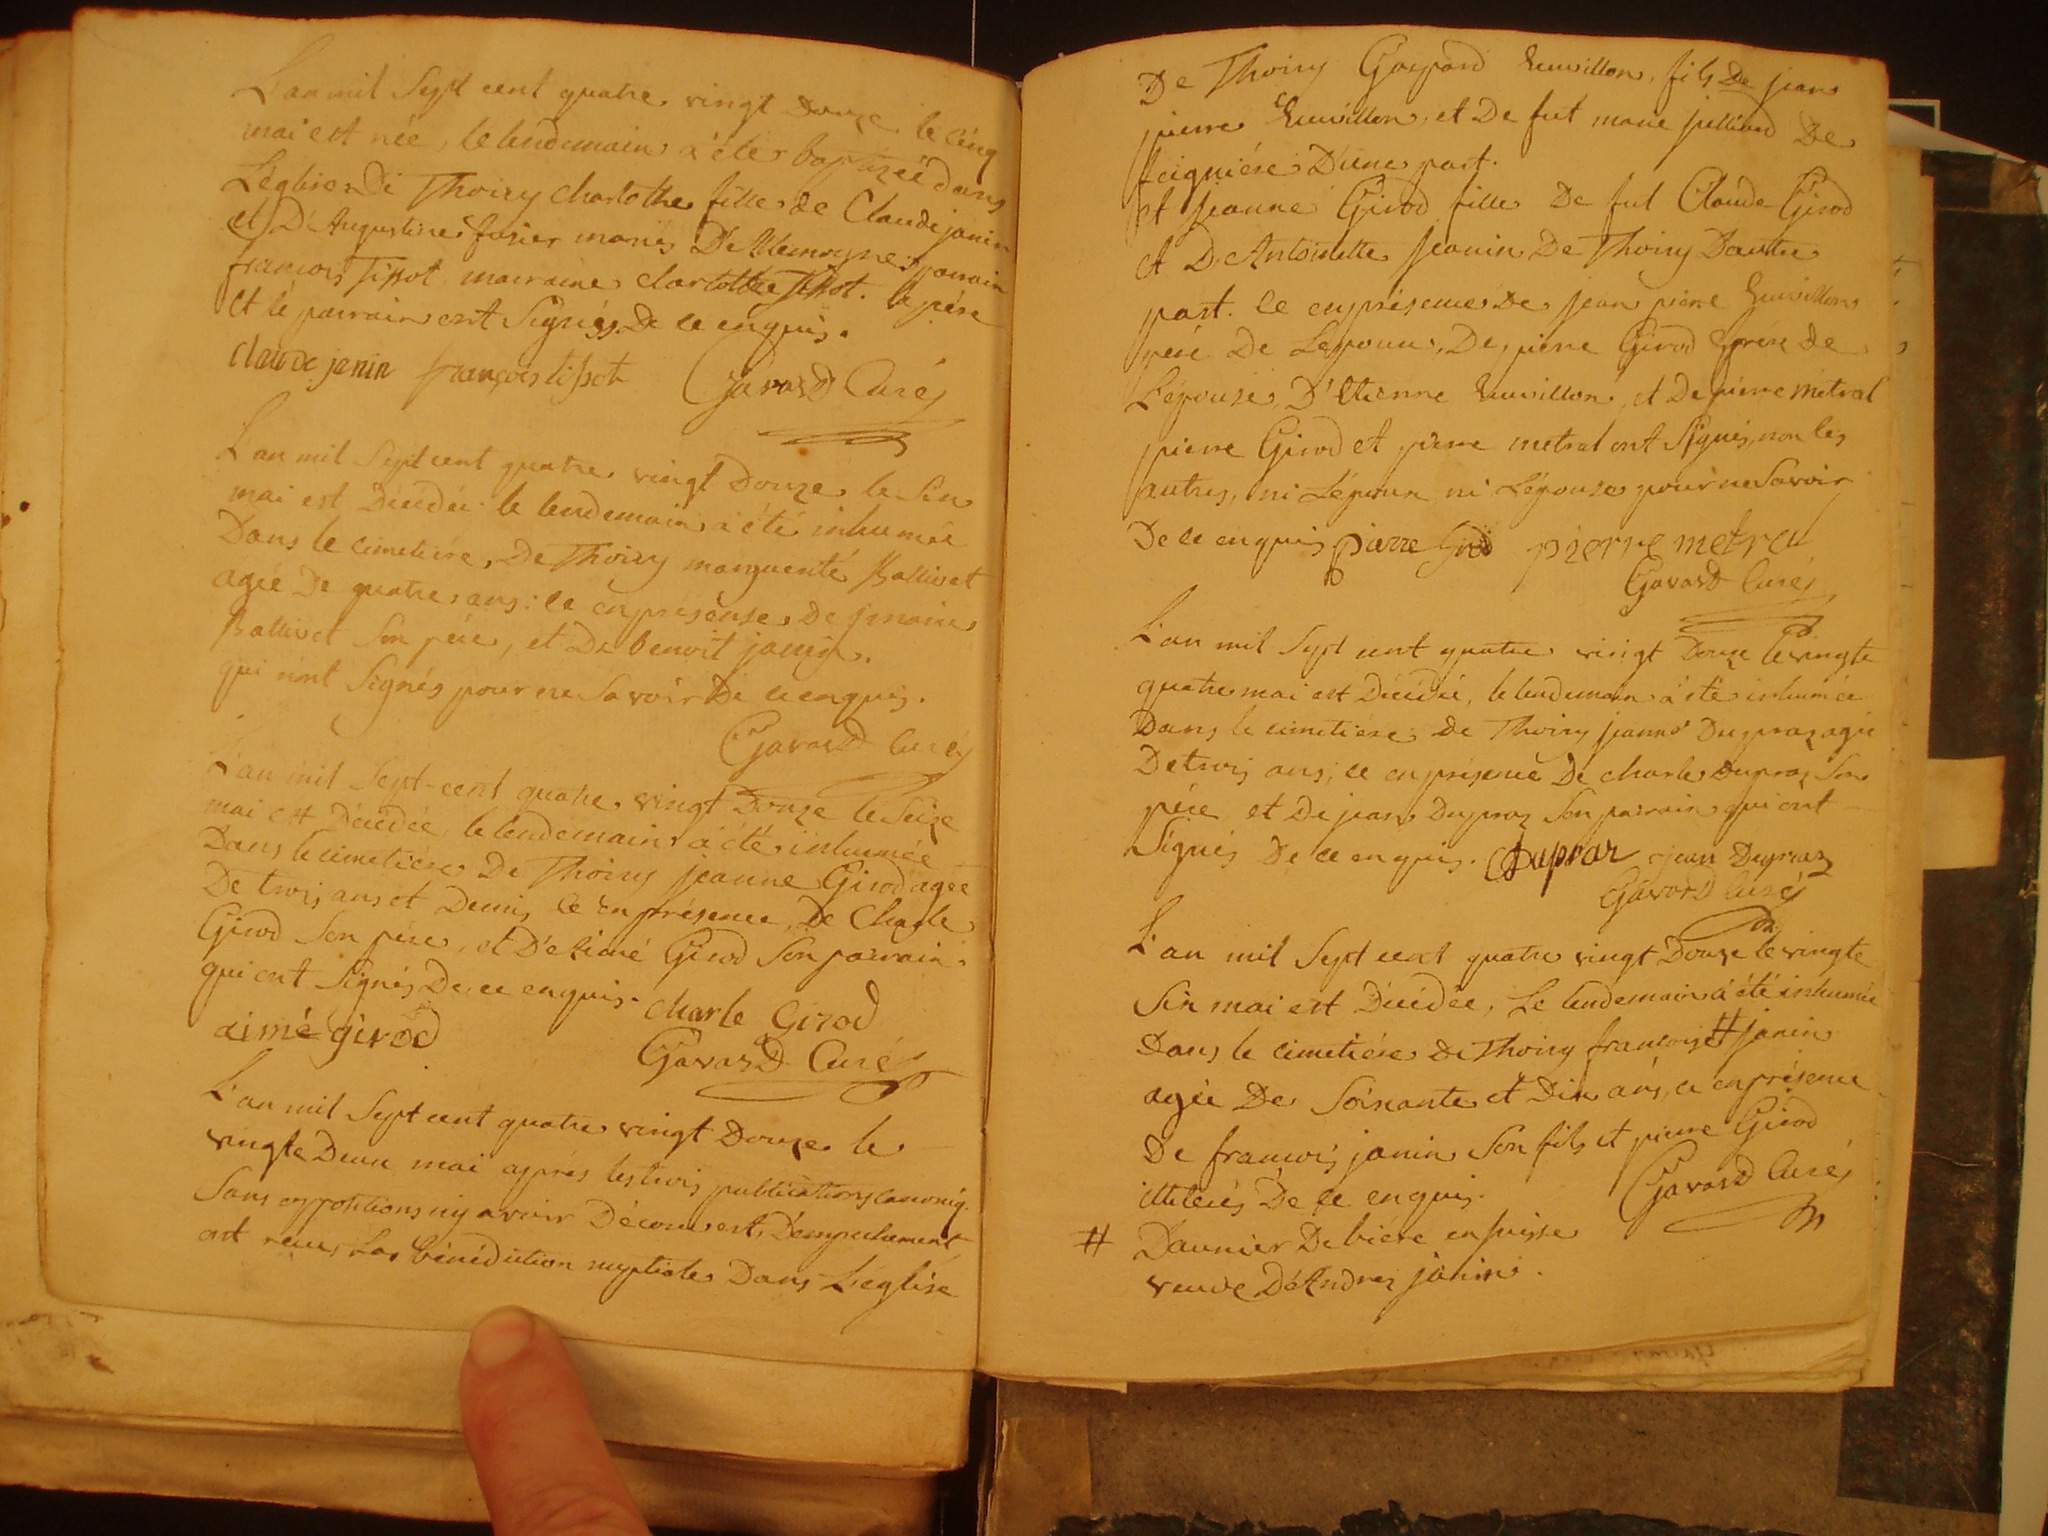 L'an mil Sept cent quatre vingt Douze le cinq
mai est née, le lendemain à étés baptizéé dans
L'église De Thoiry charlotte fille de Claude janin
et D'Augustine fusier mariés parain
francois Tissot marraine charlotte Tissot. le pére
et lé parrain ont Signés De ce enquis.
claude janin françois tissot Gavard Curé
L'an mil Sept cent quatre vingt Douze le Six
mai est Décédée le lendemain à été inhumée
Dans le cimetiére De Thoiry marguerite Ballivet
agée De quatre ans: ce en presense De
Ballivet Son pére, et De benoit janin.
qui n'ont Signés pour ne Savoir De ce enquis.
Gavard Curé
L'an mil Sept-cent quatre vingt Douze le Seize
mai est Décédée le lendemain à été inhumée
Dans le cimetiére De Thoiry jeanne Girod agée
De trois ans et Demis ce en présence De Charle
Girod Son pére, et D'Aimé Girod Son parrain
qui ont Signés De ce enquis. charle Girod
aimé girod Gavard Curé
L'an mil Sept cent quatre vingt Douze le
vingte Deux mai aprés les trois publications canoniq.
Sans oppositions ny avoir Découvert D'empechement
ont reçus La bénédiction nuptiale Dans L'eglise
De Thoiry Gaspard fils De jean
pierre et De fut marie De
D'une part.
et jeanne Girod fille De fut Claude Girod
et D'Antoinette Jeanin De Thoiry D'autre
part. ce en présence De jean pierre
pére De L'epoux, De pierre Girod frére De
L'épouse D'Etienne et De pierre métral
pierre Girod et pierre metral ont Signés, non les
autres, ni L'époux ni L'épouse pour ne Savoir
De ce enquis piarre Girod pierre metra
Gavard Curé
L'an mil Sept cent quatre vingt Douze le vingte
quatre mai est Décédée, le lendemain à été inhumée
Dans le cimetiére de Thoiry jeanne Dupraz agée
De trois ans; ce en présence De charle Dupraz Son
pére et De jean Dupraz Son parrain qui ont
Signés De ce enquis. Dupraz jean Dupraz
Gavard Curé
L'an mil Sept cent quatre vingt Douze le vingte
Six mai est Décédée, Le lendemain à été inhumée
Dans le cimetiére De Thoiry francoise # janin
agée De Soixante et Dix ans, ce en présence
De francois janin Son fils et pierre Girod
illiterés De ce enquis. Gavard Curé
# Daunier De biére en suisse
veuve D'Andrez janin.